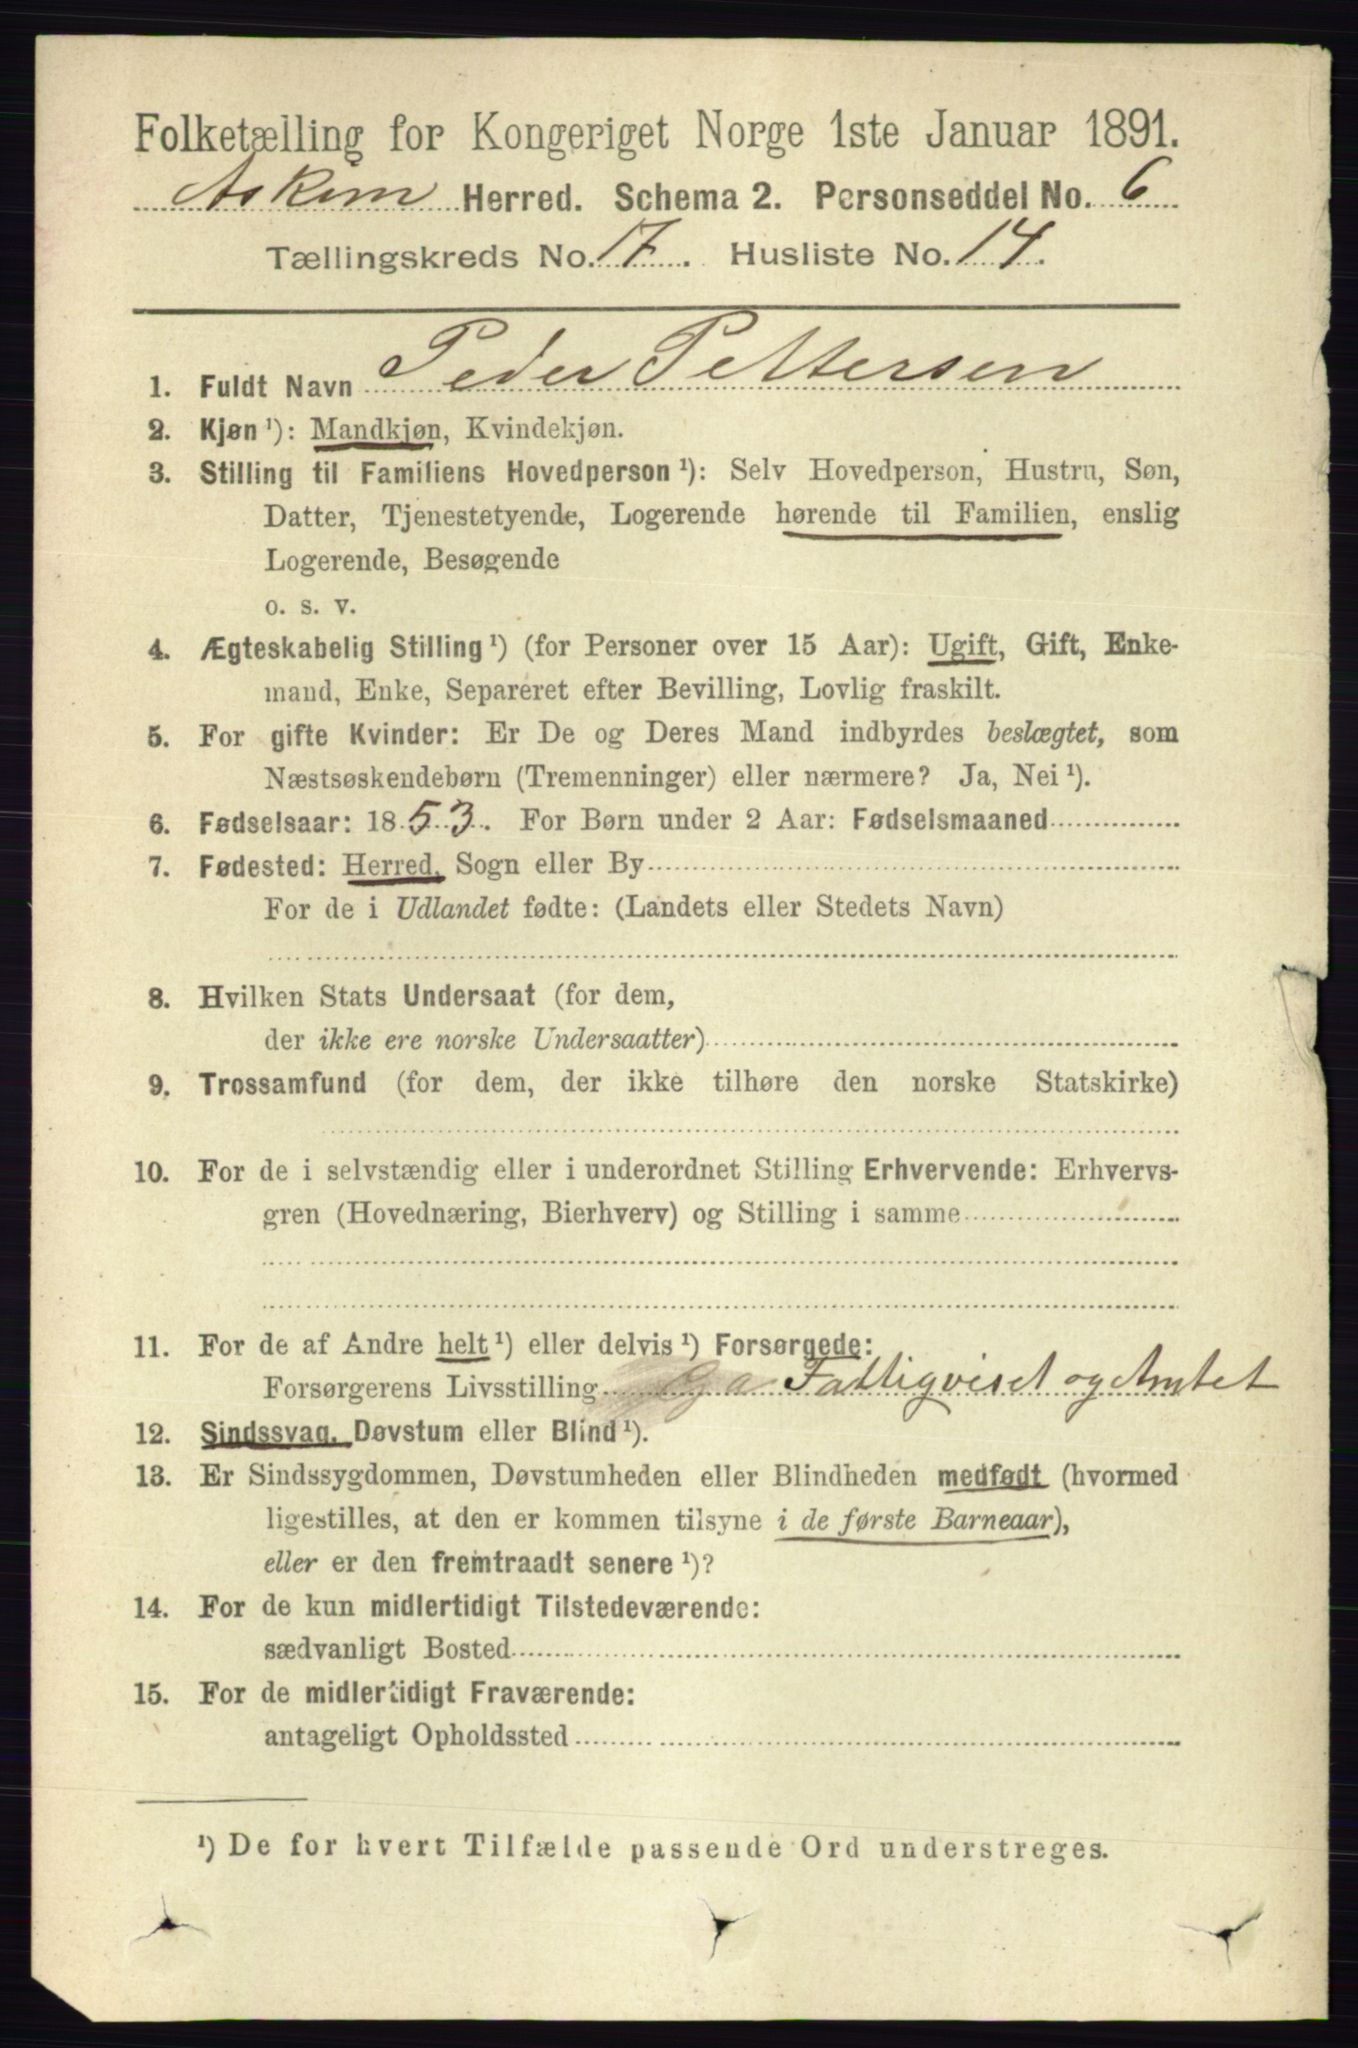 Folketælling for Kongeriget Norge 1ste Januar 1891.
Askim Herred. Schema 2. Personseddel No. 6
Tællingskreds No. 17. Husliste No. 14.
1. Fuldt Navn Peder Pettersen
2. Kjøn ¹): Mandkjøn, Kvindekjøn.
3. Stilling til Familiens Hovedperson ¹): Selv Hovedperson, Hustru, Søn,
Datter, Tjenestetyende, Logerende hørende til Familien, enslig
Logerende, Besøgende
o. s. v.
4. Ægteskabelig Stilling ¹) (for Personer over 15 Aar): Ugift, Gift, Enke-
mand, Enke, Separeret efter Bevilling, Lovlig fraskilt.
5. For gifte Kvinder: Er De og Deres Mand indbyrdes beslægtet, som
Næstsøskendebørn (Tremenninger) eller nærmere? Ja, Nei ¹).
6. Fødselsaar: 1853. For Børn under 2 Aar: Fødselsmaaned
7. Fødested: Herred, Sogn eller By
For de i Udlandet fødte: (Landets eller Stedets Navn)
8. Hvilken Stats Undersaat (for dem,
der ikke ere norske Undersaatter)
9. Trossamfund (for dem, der ikke tilhøre den norske Statskirke)
10. For de i selvstændig eller i underordnet Stilling Erhvervende: Erhvervs-
gren (Hovednæring, Bierhverv) og Stilling i samme
11. For de af Andre helt ¹) eller delvis ¹) Forsørgede:
Forsørgerens Livsstilling Fattigviset og Amtet
12. Sindssvag, Døvstum eller Blind ¹).
13. Er Sindssygdommen, Døvstumheden eller Blindheden medfødt (hvormed
ligestilles, at den er kommen tilsyne i de første Barneaar),
eller er den fremtraadt senere ¹)?
14. For de kun midlertidigt Tilstedeværende:
sædvanligt Bosted
15. For de midlertidigt Fraværende:
antageligt Opholdssted
¹) De for hvert Tilfælde passende Ord understreges.